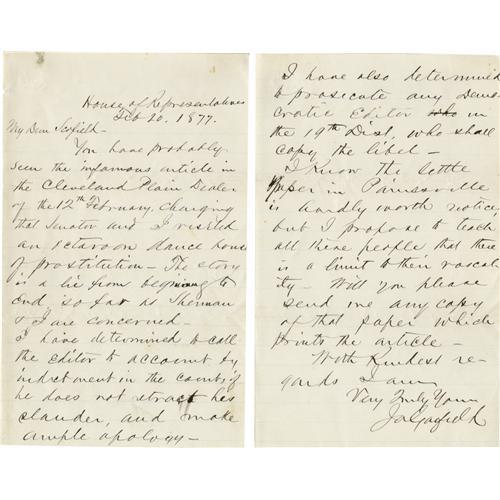 House of Representatives
Feb 20. 1877.
My Dear Scofield–
You have probably
seen the infamous article in
the Cleveland Plain Dealer
of the 12th February, charging
that Senator and I visited
an octaroon dance house
of prostitution– The story
is a lie from beginning to
end, so far as Sherman
& I are concerned–
I have determined to call
the editor to account by
indictment in the courts if
he does not retract his
slander, and make
ample apology–
I have also determined
to prosecute any Demo-
cratic Editor who in
the 19th Dist, who shall
copy the libel–
I know the little
paper in Painesville
is hardly worth notice
but I propose to teach
all these people that there
is a limit to their rascal-
ity– Will you please
send me any copy
of that paper which
prints the article–
With Kindest re-
gards I am
Very Truly Yours
J A Garfield